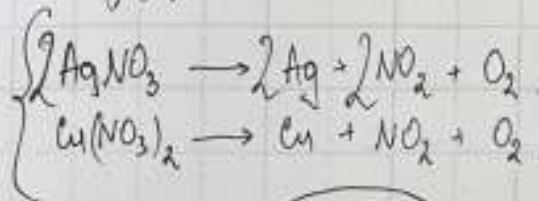 2AgNO₃ → 2Ag + 2NO₂ + O₂
Cu(NO₃)₂ → Cu + NO₂ + O₂